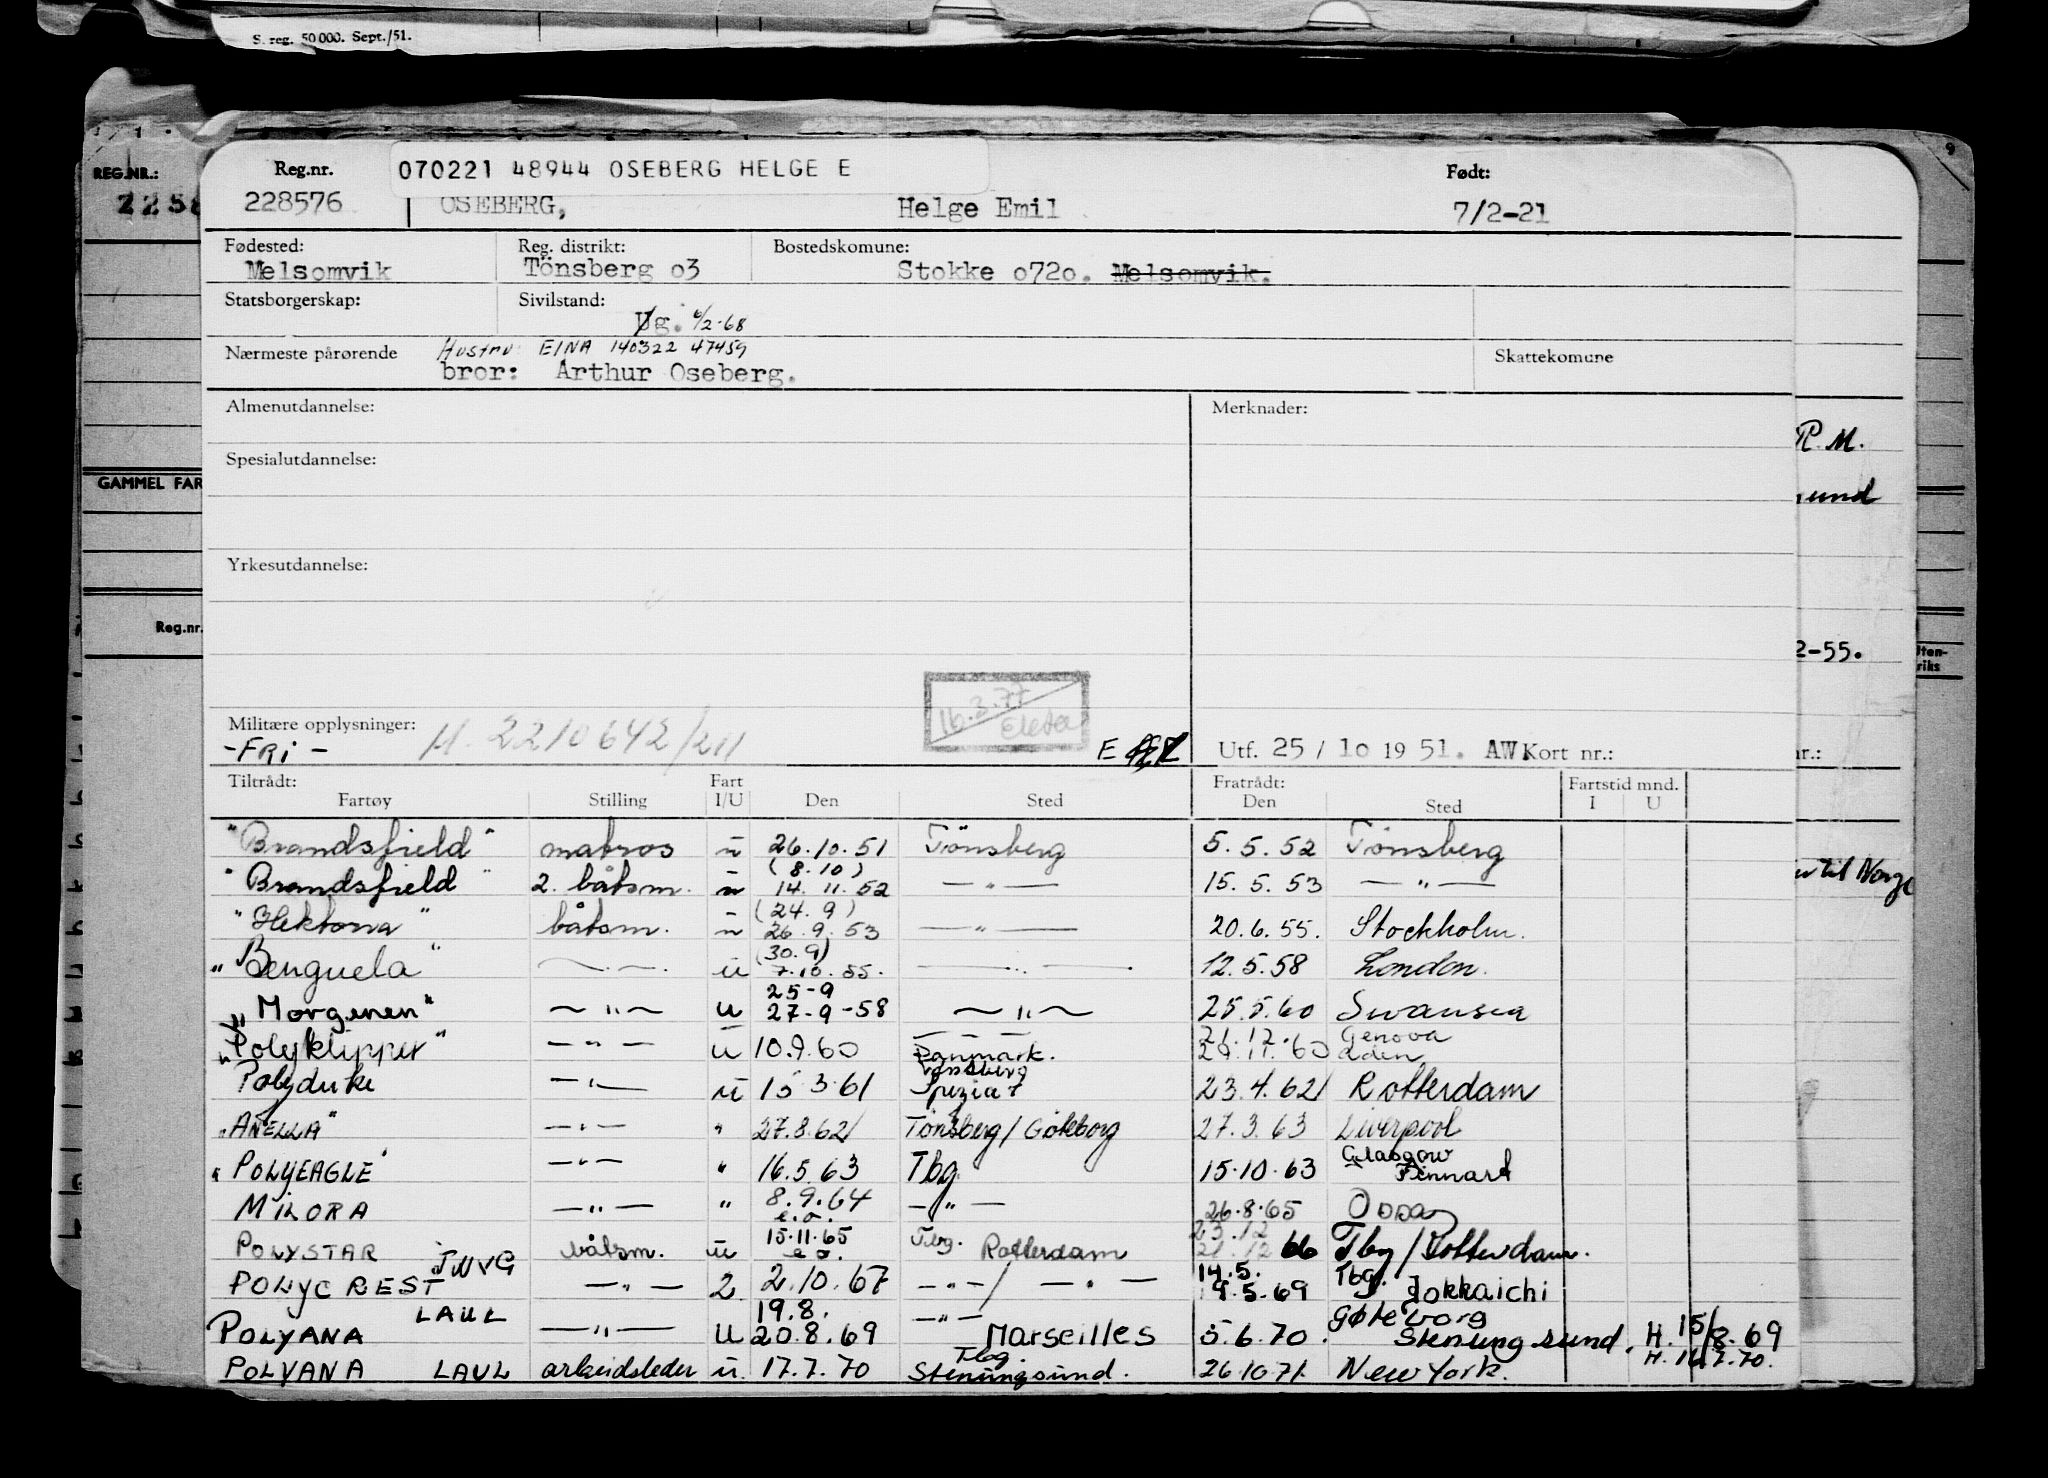 S. reg. 50 000. Sept./51.
REG.NR.:
2258
GAMMEL FAR
Reg.nr.
Reg.nr. 070221 48944 OSEBERG HELGE E Født:
228576 OSEBERG, Helge Emil 7/2-21
Fødested: Reg. distrikt: Bostedskomune:
Melsomvik Tönsberg o3 Stokke o72o. Melsomvik.
Statsborgerskap: Sivilstand:
Ug. 6/2-68
Nærmeste pårørende Hustru: EINA 140322 47459 Skattekomune
bror: Arthur Oseberg.
Almenutdannelse: Merknader:
R.M.
Spesialutdannelse:
sund
Yrkesutdannelse:
2-55.
Uten-
riks
Militære opplysninger: M. 2210642/211 16.3.77
- FRi - E Utf. 25 / 1o 19 51. AW Kort nr.: nr.:
Tiltrådt: Fart Fratrådt: Fartstid mnd.
Fartøy Stilling I/U Den Sted Den Sted I U
"Brandsfield" matros u 26.10.51 Tönsberg 5.5.52 Tönsberg
(8.10)
"Brandsfield" 2. båtsm. u 14.11.52 — " — 15.5.53 — " — til Norge
(24.9)
"Hektoria" båtsm. u 26.9.53 — " — 20.6.55. Stockholm.
(30.9)
"Benguela" — " — u 7.10.55. — " — 12.5.58 London.
25-9
"Morgenen" — " — u 27-9-58 — " — 25.5.60 Swansea
— " — 21.12. Genova
"Polyklipper" — " — u 10.9.60 Danmark. 29.11.60 Aden
Tönsberg
Polyduke — " — u 15 3.61 Spezia 23.4.62 Rotterdam
"ANELLA" — " — " 27.8.62 Tönsberg/Göteborg 27.3.63 Liverpool
Glasgow
"POLYEAGLE" — " — " 16.5.63 Tbg 15.10.63 Finnart
MILORA — " — " 8.9.64 — " — 26.8.65
e.o. 23.12
15.11.65
POLYSTAR båtsm. u e.o. Tbg. Rotterdam 21.12 66 Tbg/Rotterdam.
JNVG 14.5. Tbg.
POLYCREST — " — 2 2.10.67 — " — / — " — 19.5.69 Yokkaichi
LAUL 19.8. — " — Göteborg
POLYANA — " — U 20.8.69 Marseilles 5.6.70. Stenungsund. H. 15/8.69
Tbg. H. 16.7.70.
POLYANA LAUL arbeidsleder u. 17.7.70 Stenungsund. 26.10.71. New York.